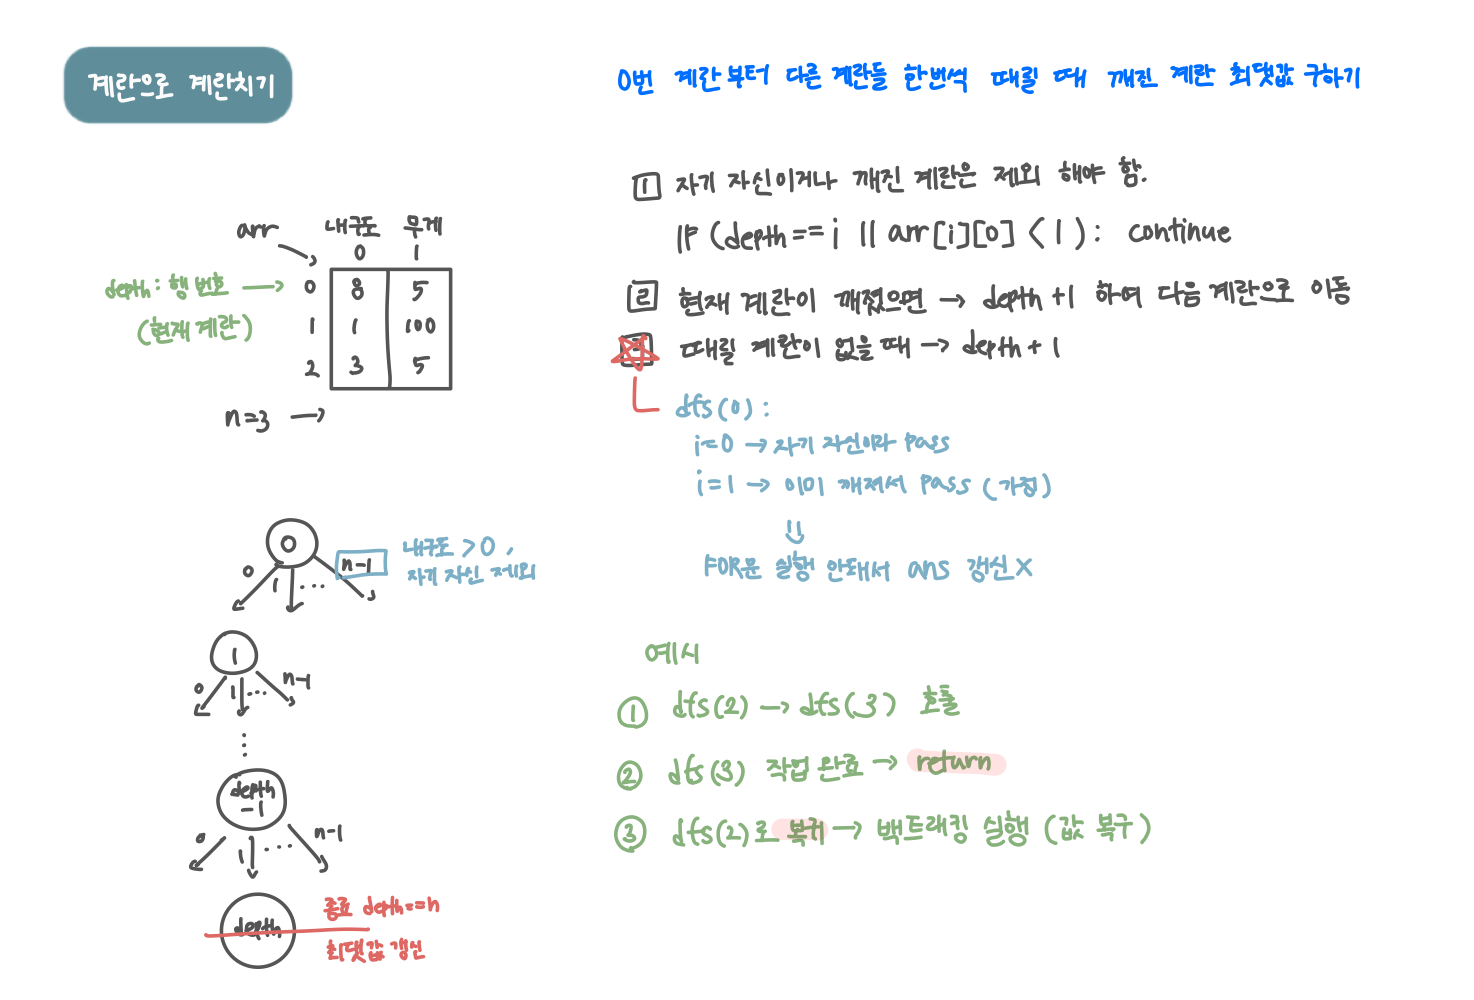 계란으로 계란치기
0번 계란부터 다른 계란들 한번씩 때릴 때 깨진 계란 최댓값 구하기
arr 내구도 무게
0 1
depth : 행 번호 → 0 8 5
(현재 계란) 1 1 100
2 3 5
n=3 →
1 자기 자신이거나 깨진 계란은 제외 해야 함.
IF (depth == i || arr[i][0] < 1) : continue
2 현재 계란이 깨졌으면 → depth +1 하여 다음 계란으로 이동
때릴 계란이 없을 때 → depth + 1
dfs(0) :
i=0 → 자기 자신이라 pass
i=1 → 이미 깨져서 pass (가정)
⇓
FOR문 실행 안돼서 ans 갱신 X
0
0 1 ... n-1
내구도 > 0 ,
자기 자신 제외
1
0 1 ... n-1
⋮
depth
-1
0 1 ... n-1
depth
종료 depth==n
최댓값 갱신
예시
① dfs(2) → dfs(3) 호출
② dfs(3) 작업 완료 → return
③ dfs(2)로 복귀 → 백트래킹 실행 (값 복구)